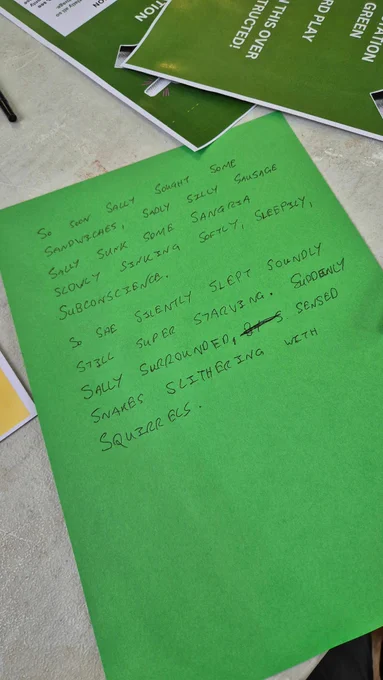 TION
TATION
GREEN
RD PLAY
N THIS OVER
TRUCTED!
SO SOON SALLY SOUGHT SOME
SANDWICHES, SADLY SILLY SAUSAGE
SALLY SUNK SOME SANGRIA
SLOWLY SINKING SOFTLY, SLEEPILY,
SUBCONSCIENCE.
SO SHE SILENTLY SLEPT SOUNDLY
STILL SUPER STARVING. SUDDENLY
SALLY SURROUNDED, SENSED
SNAKES SLITHERING WITH
SQUIRRELS.